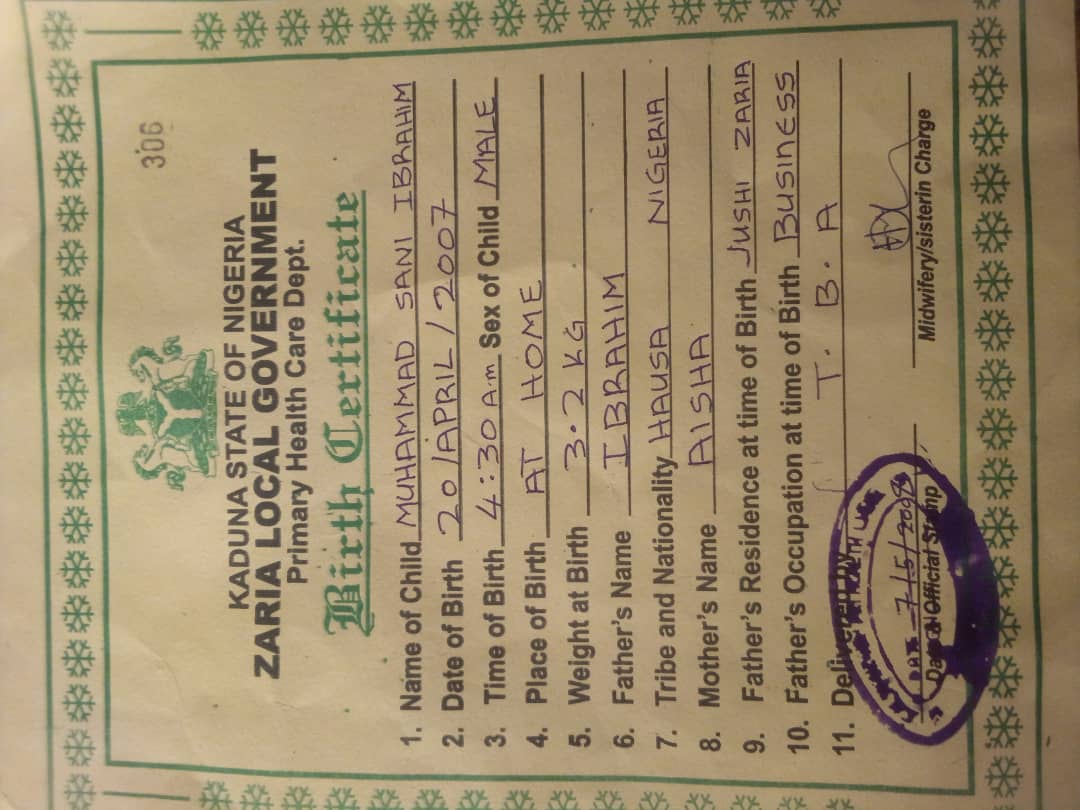 306
KADUNA STATE OF NIGERIA
ZARIA LOCAL GOVERNMENT
Primary Health Care Dept.
Birth Certificate
1. Name of Child MUHAMMAD SANI IBRAHIM
2. Date of Birth 20/APRIL/2007
3. Time of Birth 4:30 Am Sex of Child MALE
4. Place of Birth AT HOME
5. Weight at Birth 3.2 KG
6. Father's Name IBRAHIM
7. Tribe and Nationality HAUSA NIGERIA
8. Mother's Name AISHA
9. Father's Residence at time of Birth JUSHI ZARIA
10. Father's Occupation at time of Birth BUSINESS
11. Delivered by T. B. A
7/5/2008
Date & Official Stamp Midwifery/sisterin Charge